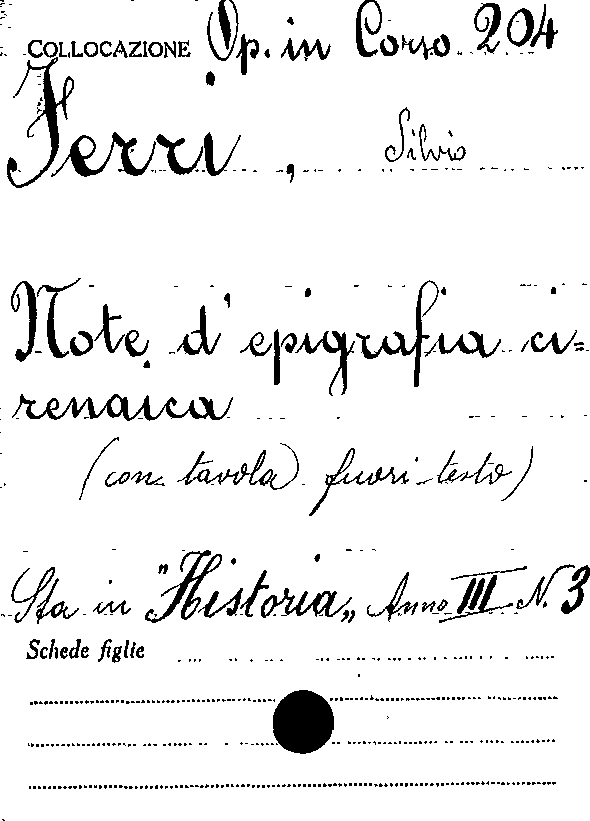 COLLOCAZIONE Op. in Corso 204
Ferri, Silvio
Note d'epigrafia ci=
renaica
(con tavola fuori testo)
Sta in "Historia„ Anno III N. 3
Schede figlie